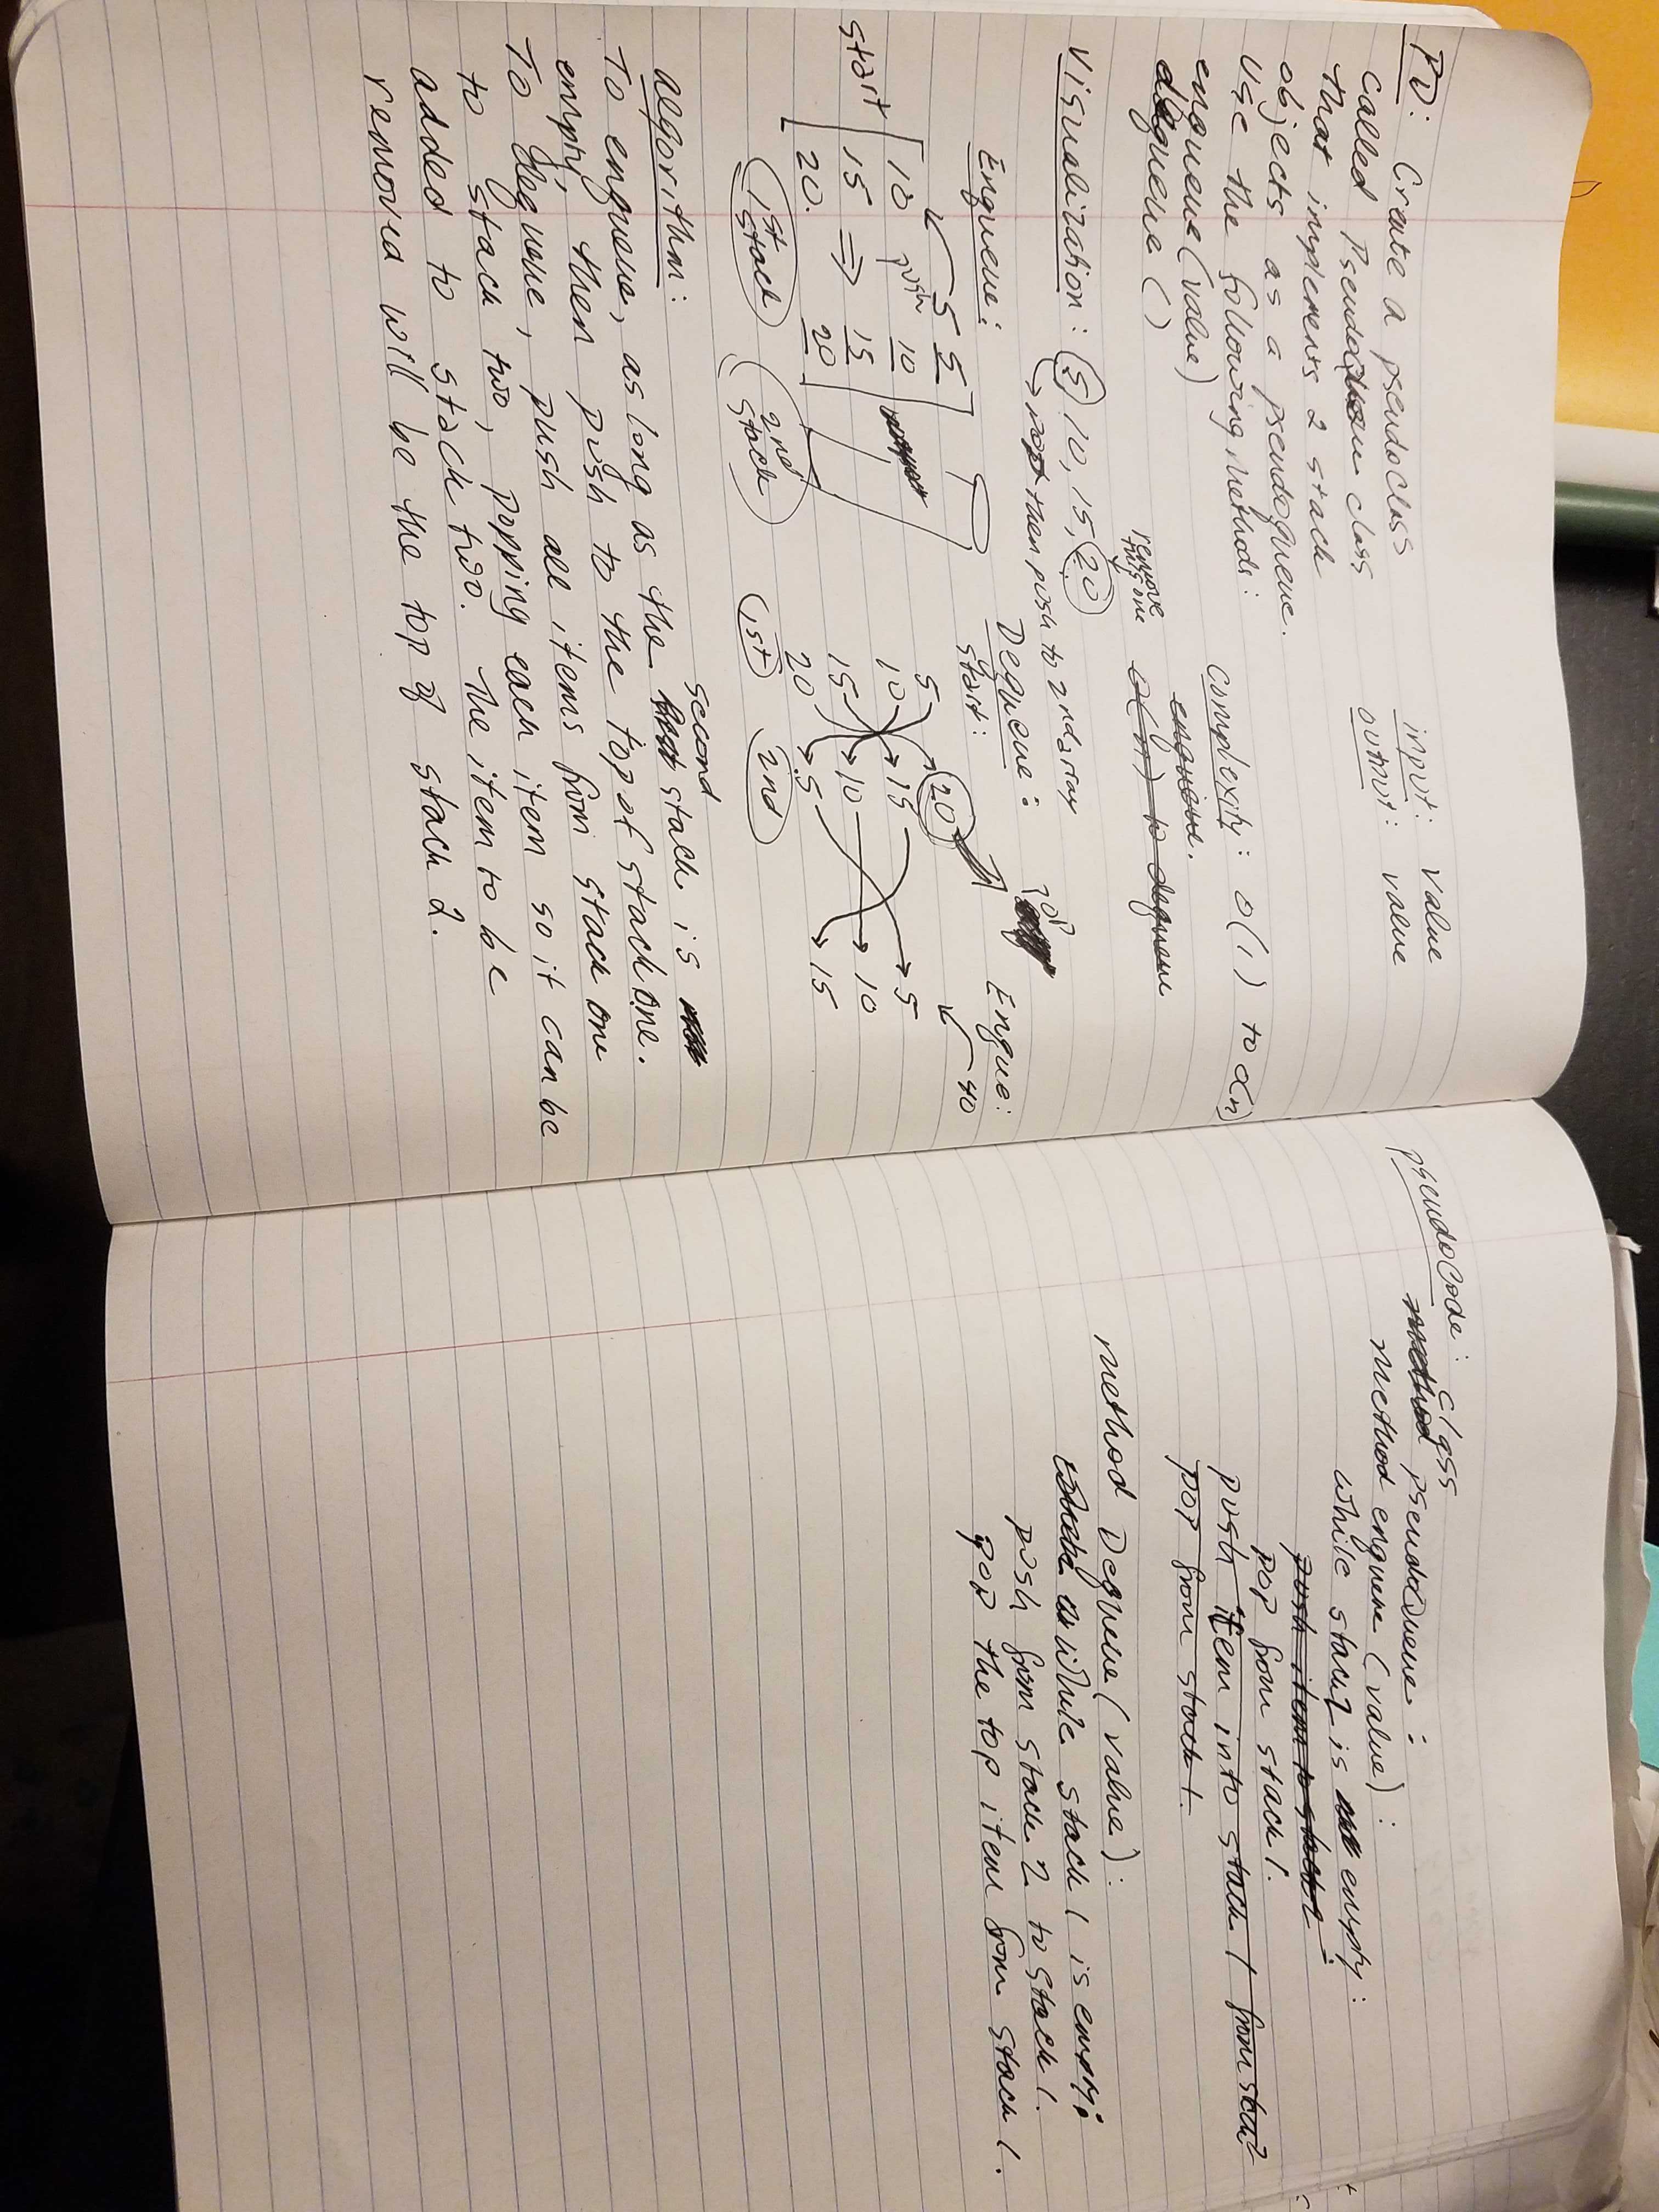 PD: Create a pseudoclass
called Pseudo class
that implements 2 stack
objects as a pseudoqueue.
Use the following methods:
enqueue (value)
dequeue ( )
input: value
output: value
complexity: O(1) to O(n)
enqueue.
O(n) to dequeue
Visualization: 5, 10, 15, 20
remove this one
pop then push to 2nd array
Enqueue:
5 5
10 push 10
start 15 ⇒ 15
20. 20
1st stack
2nd stack
Dequeue:
start:
5 20
10 15
15 10
20 5
1st 2nd
pop
Enque:
40
5
10
15
algorithm:
second
To enqueue, as long as the first stack is
empty, then push to the top of stack one.
To dequeue, push all items from stack one
to stack two, popping each item so it can be
added to stack two. The item to be
removed will be the top of stack 2.
pseudocode: class
method PseudoQueue:
method enqueue (value):
while stack2 is empty:
push item to stack2:
pop from stack 1.
push item into stack 1 from stack2
pop from stack 1.
method Dequeue (value):
while stack 1 is empty:
push from stack 2 to stack 1.
pop the top item from stack 1.